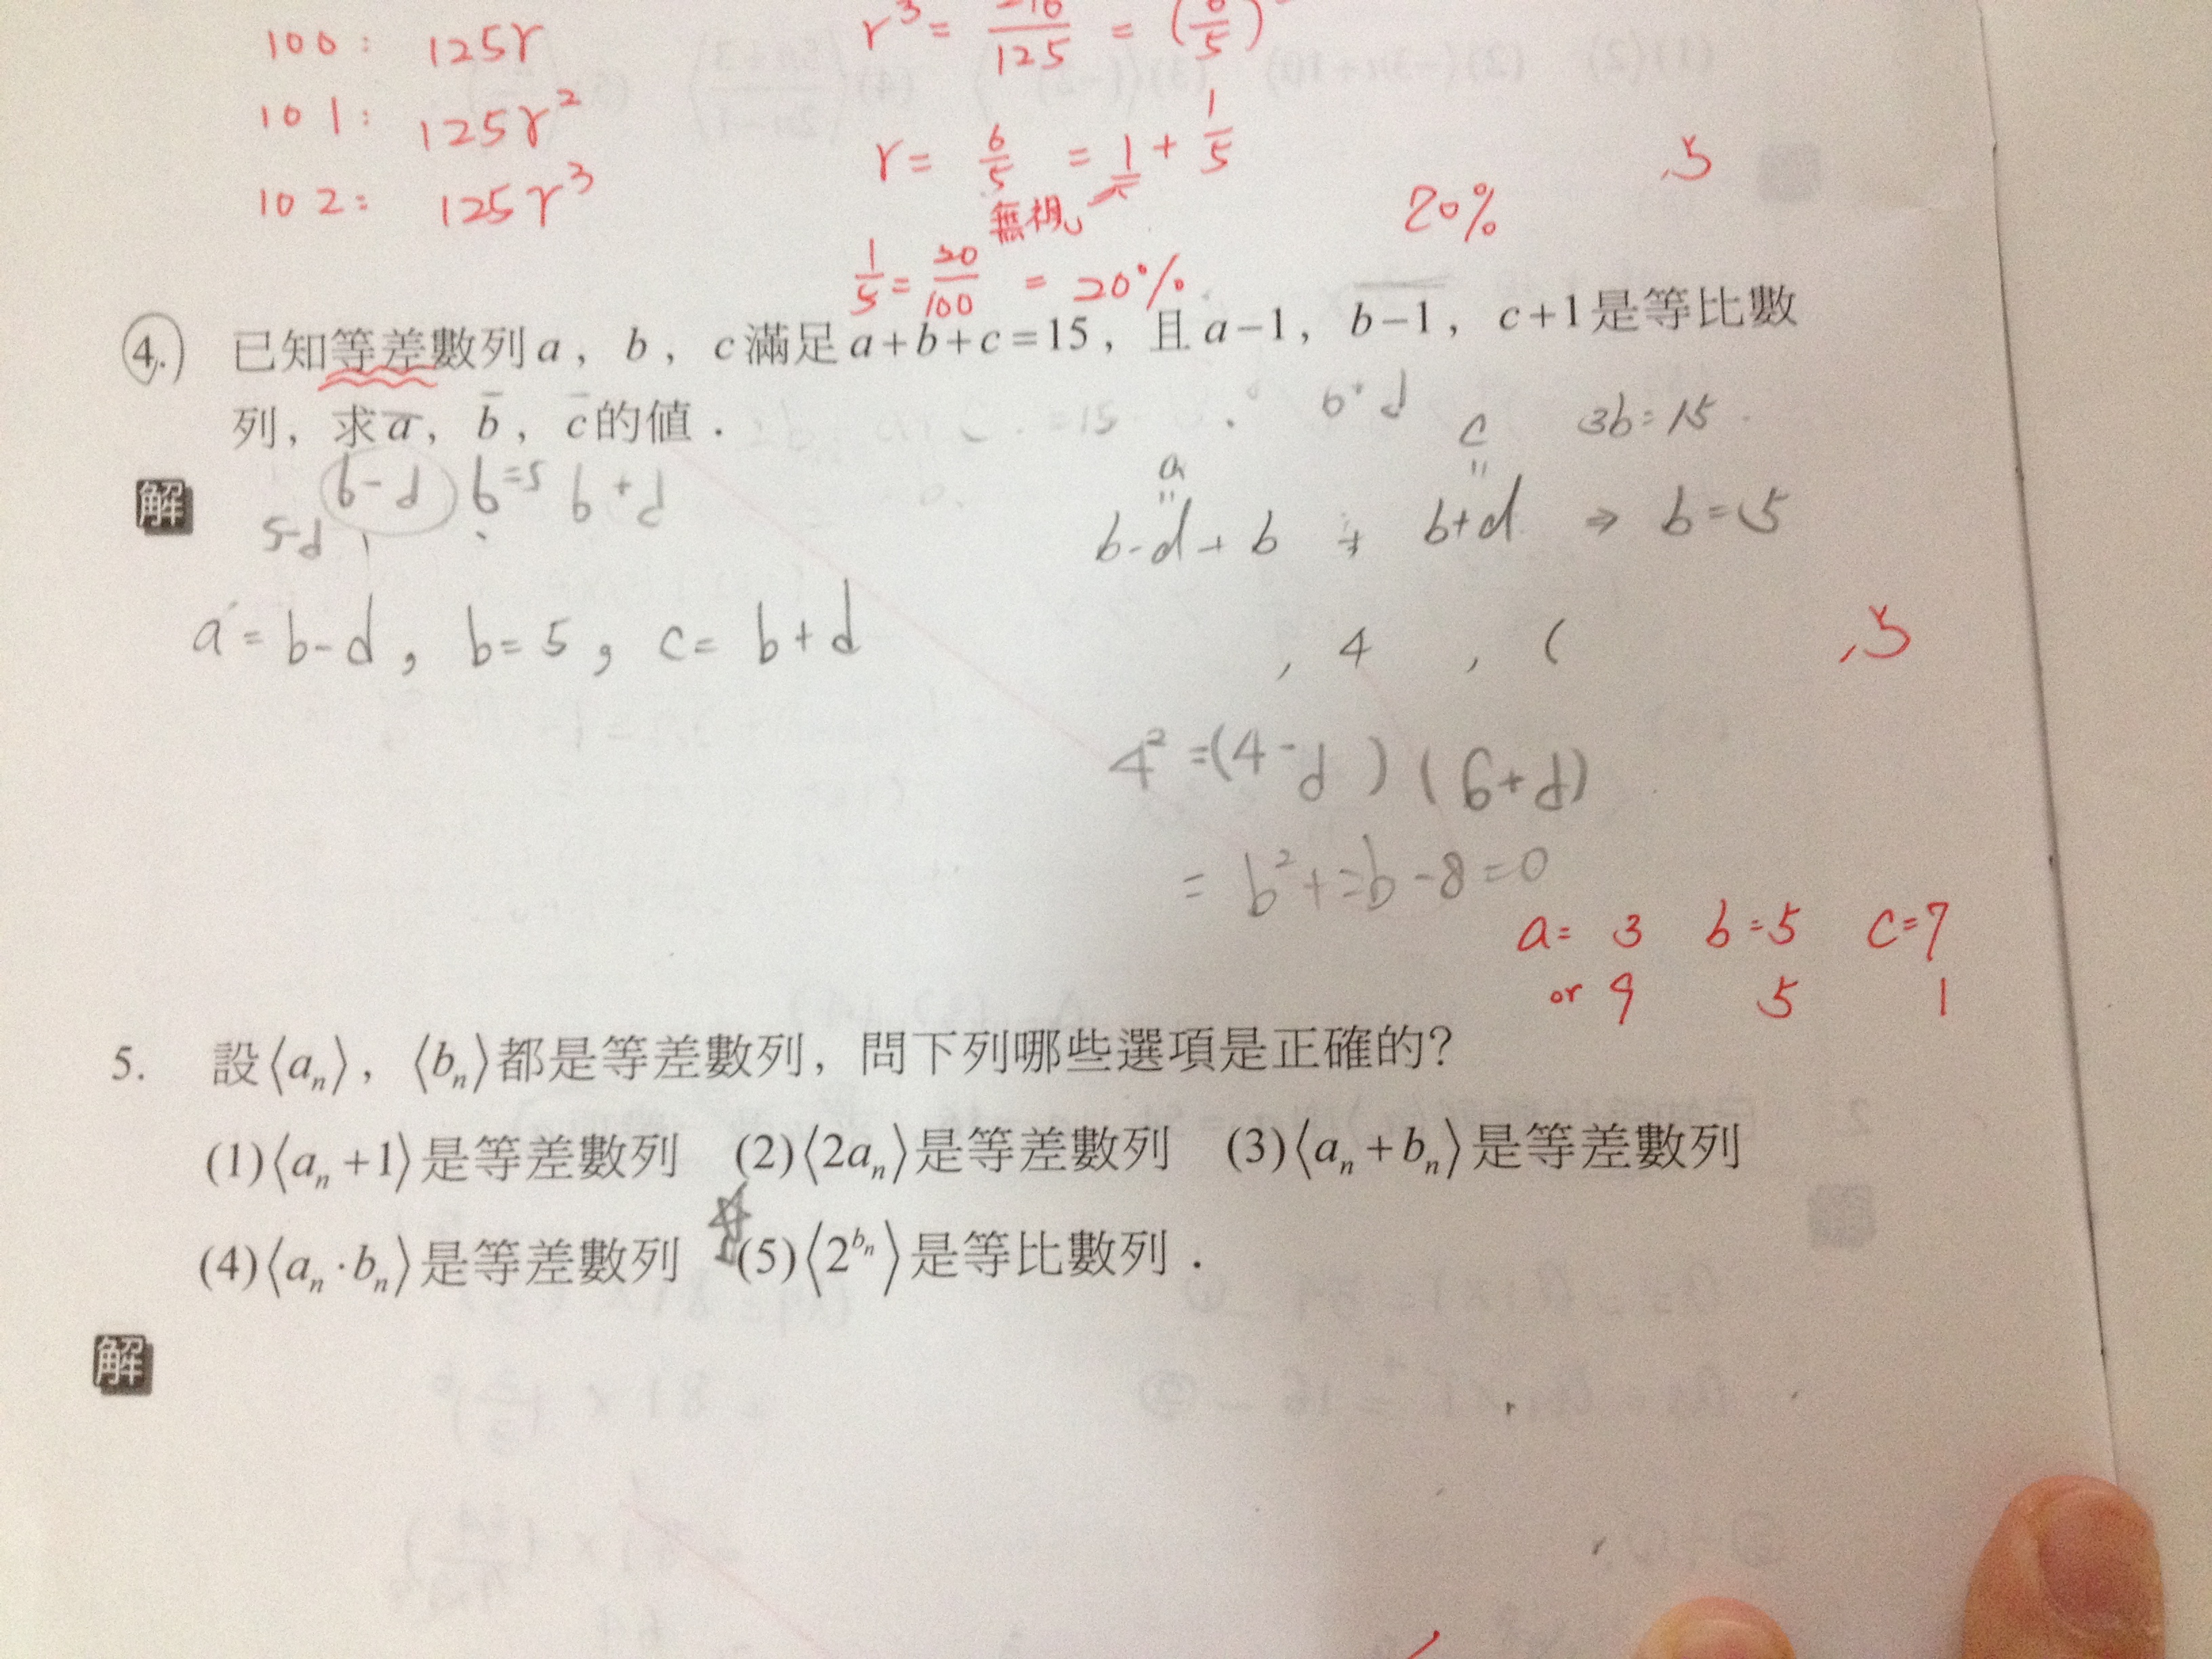 100: 125r
r³ = -216/125 = (6/5)
101: 125r²
r = 6/5 = 1 + 1/5
,5
102: 125r³
無視
20%
1/5 = 20/100 = 20%
4. 已知等差數列a，b，c滿足a+b+c=15，且a−1，b−1，c+1是等比數
列，求a，b，c的值．
b+d
c
3b=15
解
b-d b=5 b+d
a
5-d
b-d+b + b+d ⇒ b=5
a=b-d, b=5, c=b+d
, 4 , (
,5
4²=(4-d)(6+d)
= b²+=b-8=0
a= 3 b=5 c=7
or 9 5 1
5. 設⟨aₙ⟩，⟨bₙ⟩都是等差數列，問下列哪些選項是正確的?
(1)⟨aₙ+1⟩是等差數列 (2)⟨2aₙ⟩是等差數列 (3)⟨aₙ+bₙ⟩是等差數列
(4)⟨aₙ·bₙ⟩是等差數列 (5)⟨2^bₙ⟩是等比數列．
解